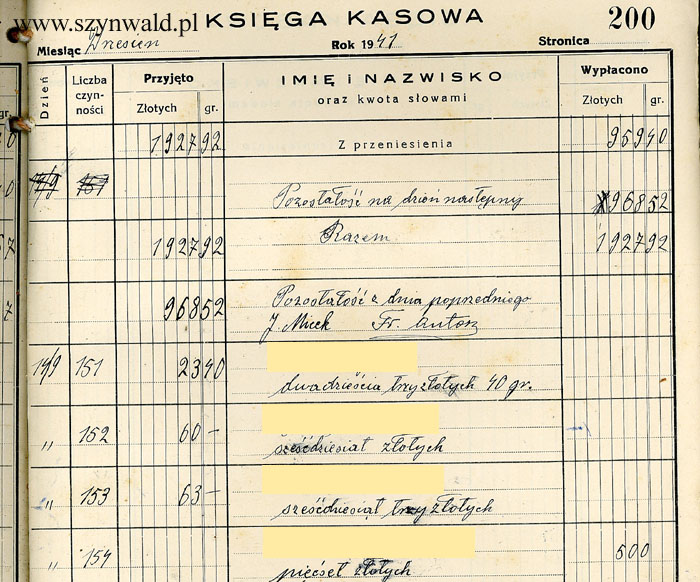 www.szynwald.pl
KSIĘGA KASOWA 200
Miesiąc Wrzesień Rok 1941 Stronica
Dzień Liczba czyn-ności Przyjęto Złotych gr. IMIĘ i NAZWISKO oraz kwota słowami Wypłacono Złotych gr.
1927 92 Z przeniesienia 959 40
14/9 151
Pozostałość na dzień następny 968 52
1927 92 Razem 1927 92
968 52 Pozostałość z dnia poprzedniego
J Micek Fr. Antosz
14/9 151 23 40
dwadzieścia trzy złotych 40 gr.
" 152 60 -
sześćdziesiąt złotych
" 153 63 -
sześćdziesiąt trzy złotych
" 154 500
pięćset złotych